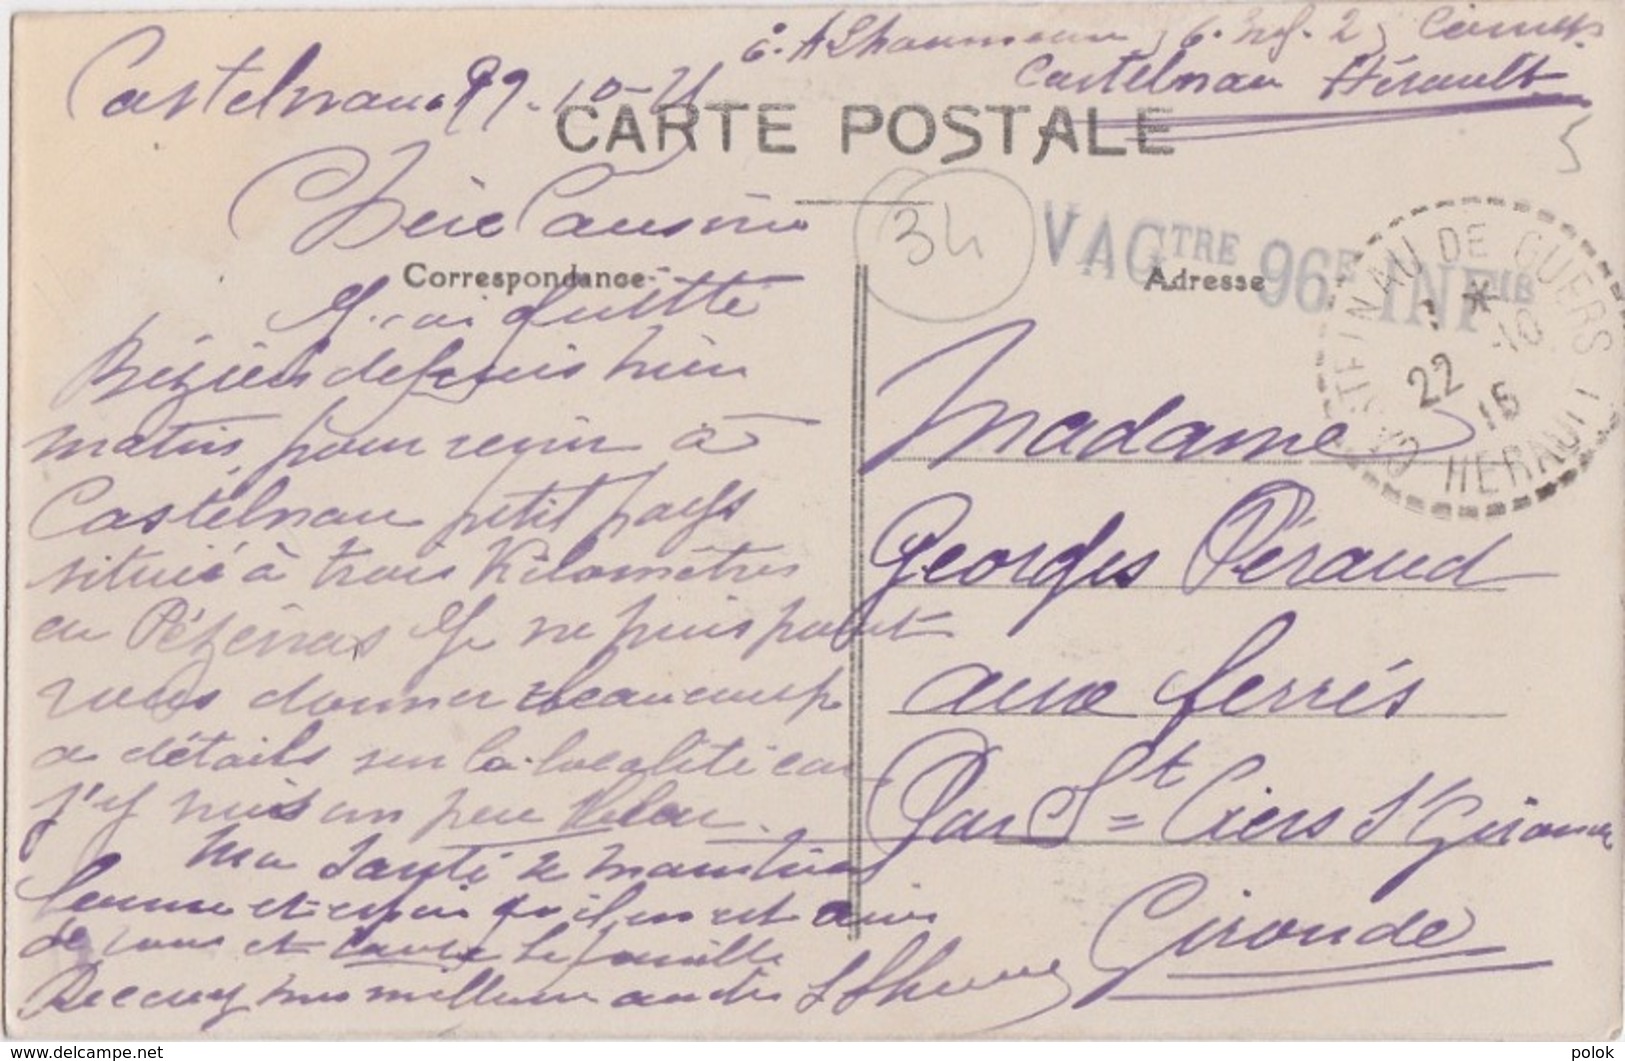 Castelnau
Castelnau Hérault
CARTE POSTALE
34
VAG^TRE 96^E INF^IE
DE GUERS
22 -10
15
HERAULT
Correspondance
Adresse
Chère Cousine
J'ai quitté
Béziers depuis hier
matin, pour venir à
Castelnau petit pays
situé à trois Kilomètres
de Pézenas Je ne puis point
vous donner beaucoup
de détails sur la localité car
j'y suis un peu
Ma Santé se maintient
bonne et espère qu'il en est ainsi
de vous et toute la famille
Recevez mes meilleures amitiés
Madame
Georges Péraud
aux ferrés
Par S^t= Ciers s/ Gironde
Gironde
www.delcampe.net
polok